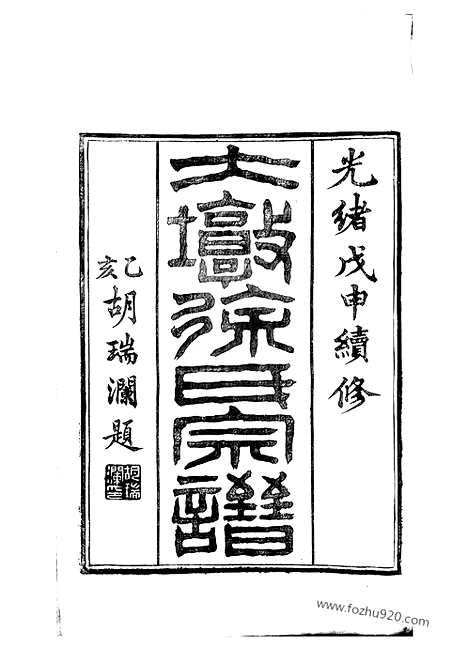 光緒戊申續修
大墩徐氏宗譜
乙亥胡瑞瀾題
胡瑞瀾印
www.fozhu920.com